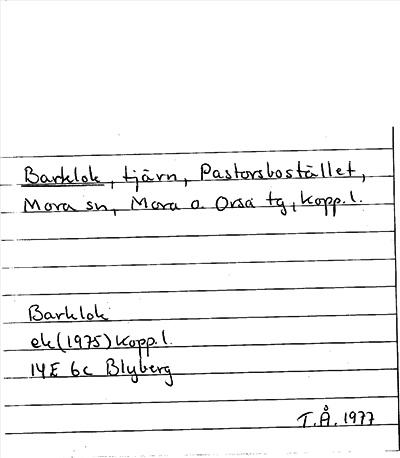 Barklok, tjärn, Pastorsbostället,
Mora sn, Mora o. Orsa tg, Kopp.l.
Barklok
ek (1975) Kopp.l.
14E 6c Blyberg
T.Å. 1977